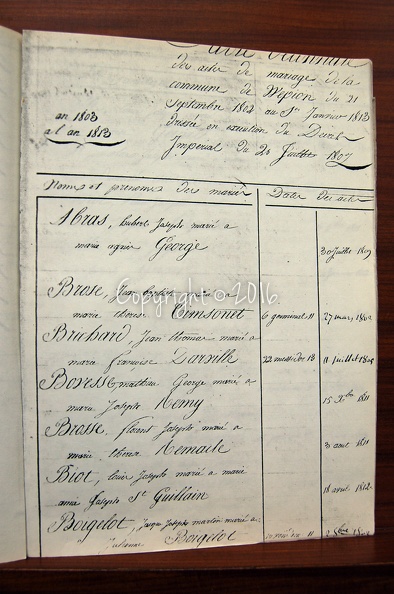 des actes de mariage de la
commune de Wépion du 21
Septembre 1802 au 1er Janvier 1813
dressée en execution du Decret
Imperial du 20 Juillet 1807
an 1803
a l an 1813
Noms et prenoms des mariés
Dates des actes
Abras, hubert Joseph marié a
marie agnes George
30 Juillet 1809
Brose, Jean marié a
marie therese Simsonet 6 germinal 11 27 mars
Brichard Jean thomas marié a
marie françoise 22 messidor 11 Juillet
mathieu George marié a
marie Josephe Remy
15 Xbre 1811
Brosse florent Joseph marié a
marie therese Remacle
3 aout 1811
Biot, louis Joseph marié a marie
anne Joseph St Guillain
18 avril 1812
Boigelot, Jaque Joseph martin marié a
Julienne Boigelot 11
Copyright © 2016